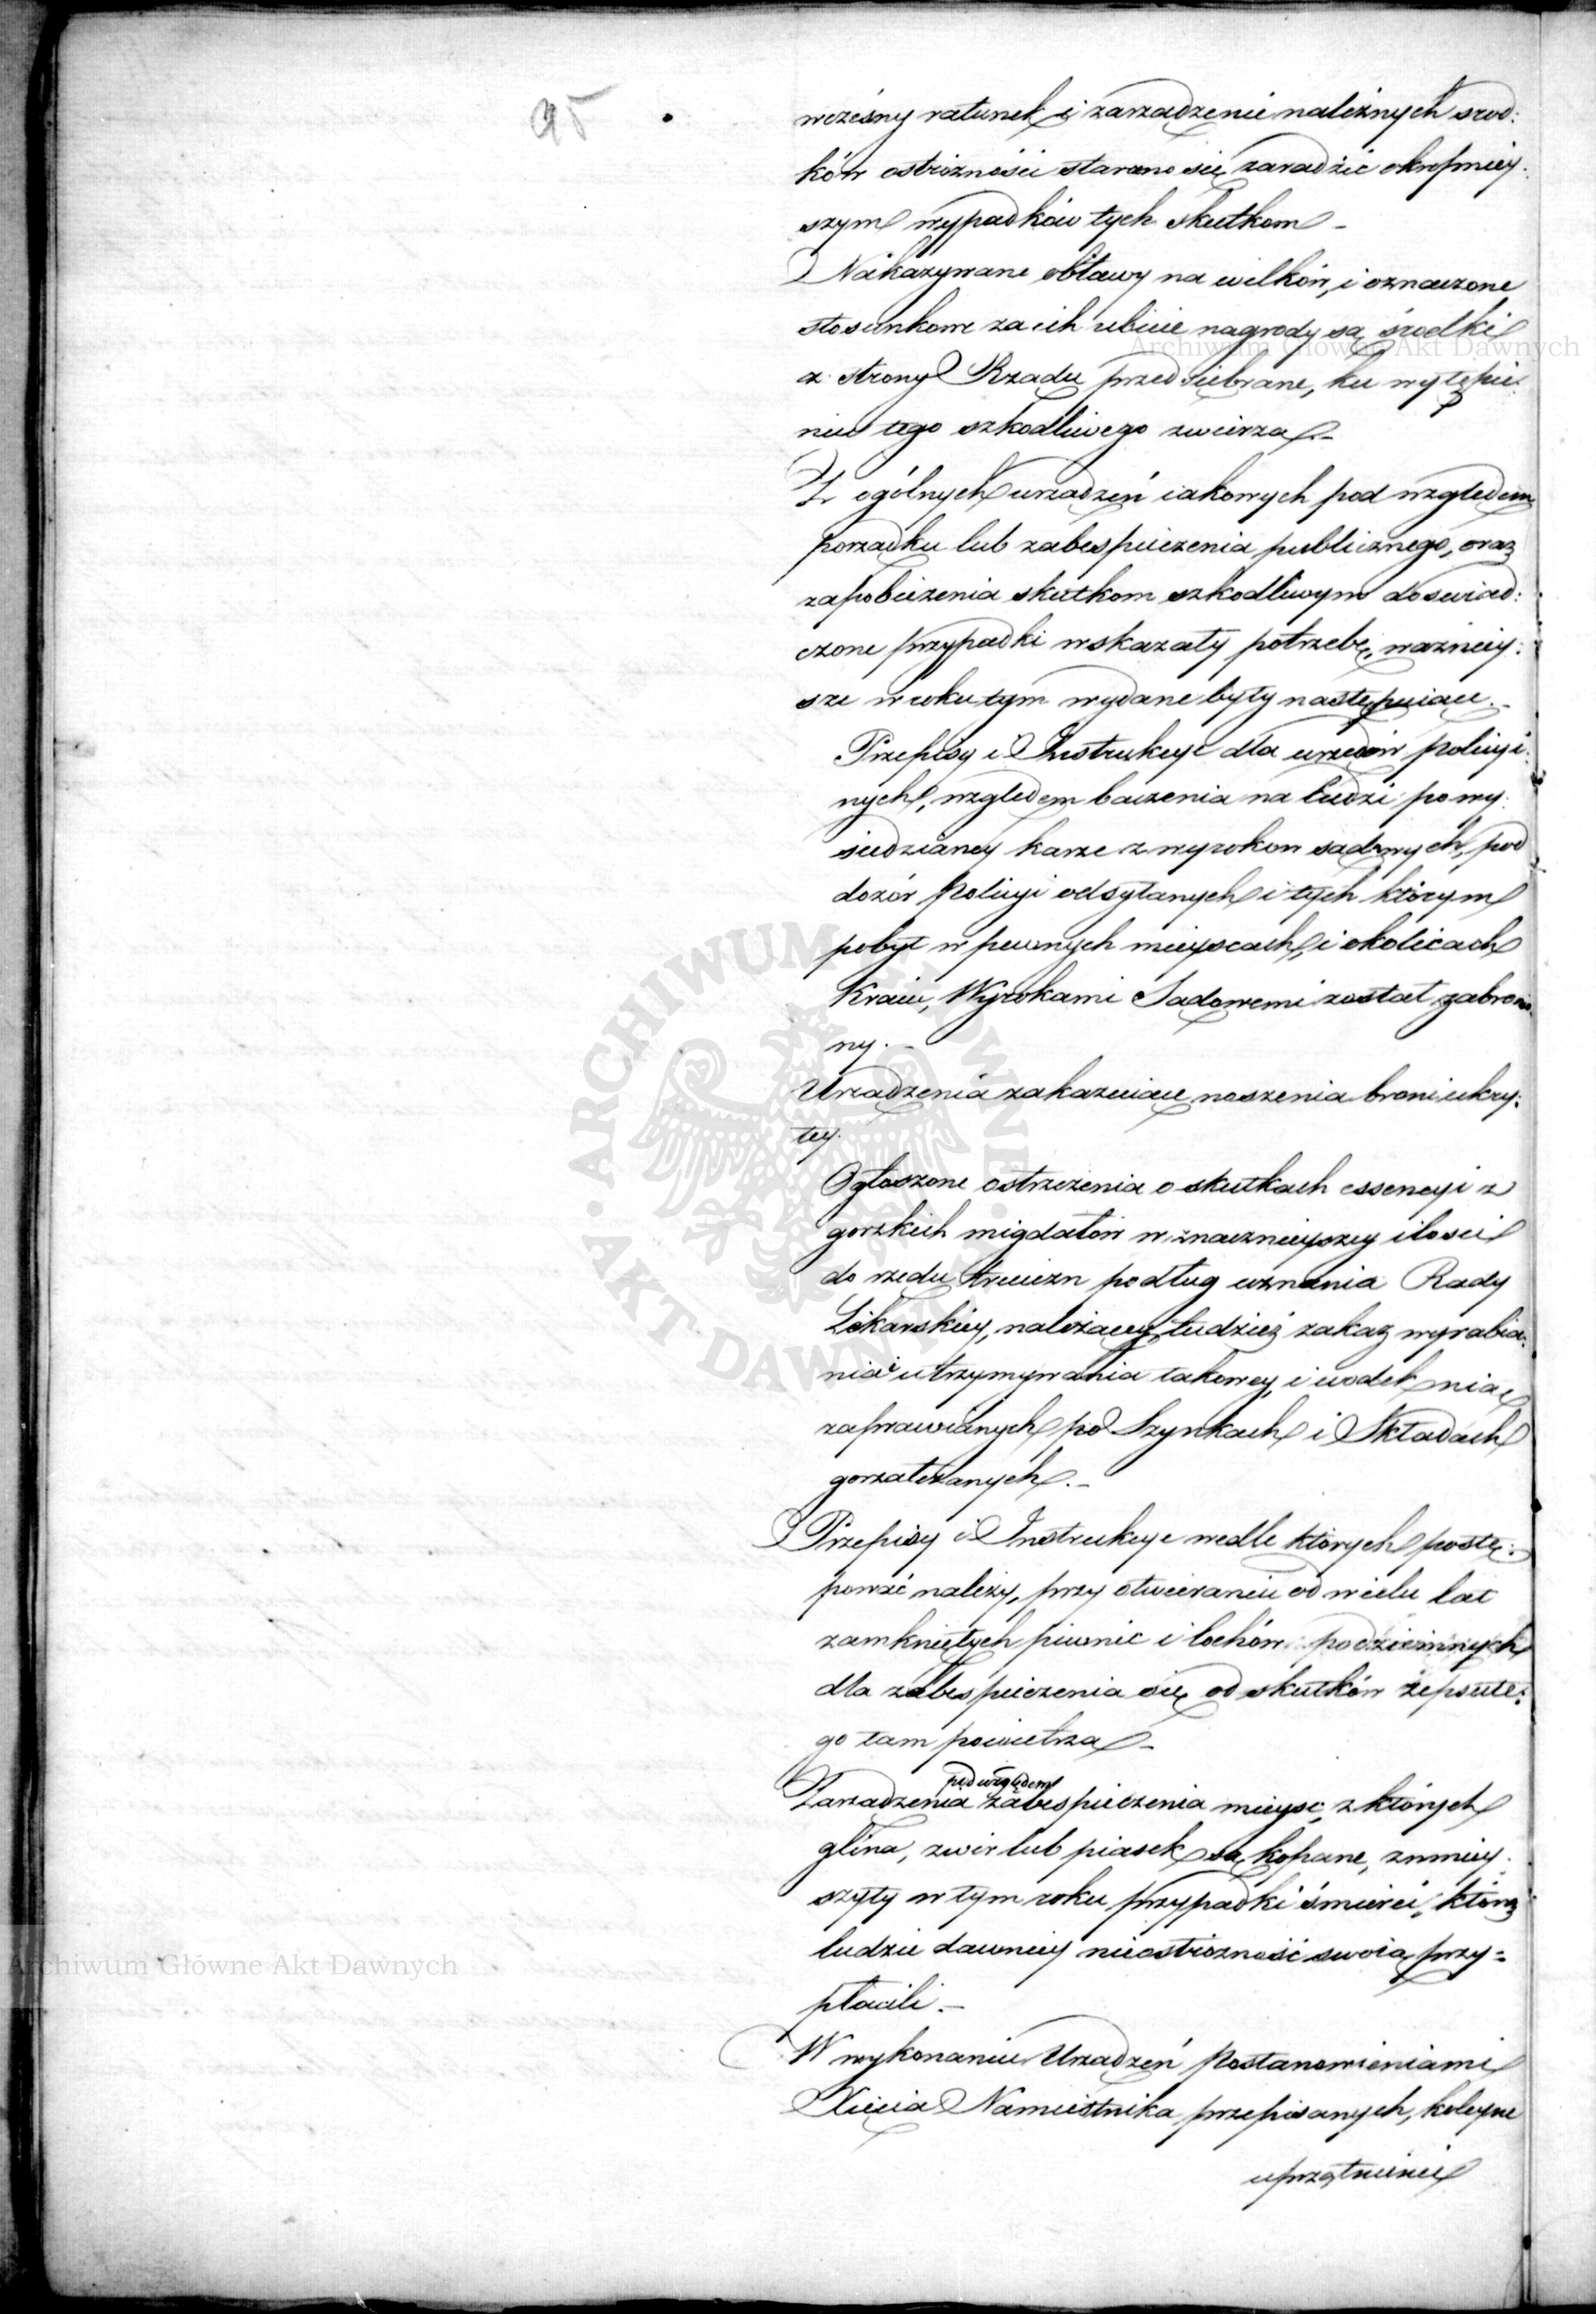 95
wcześny ratunek i zarządzenie należnych srod:
ków ostrożności starano się zaradzić okropniey:
szym wypadków tych skutkom –
Nakazywane obławy na wilków, i oznaczone
stosunkowe za ich ubicie nagrody są środki
z strony Rządu przedsiebrane, ku wytępie:
niu tego szkodliwego zwierza –
Z ogólnych urządzeń iakowych pod względem
porządku lub zabespieczenia publicznego, oraz
zapobieżenia skutkom szkodliwym doswiad:
czone przypadki wskazały potrzebę, ważniey:
sze w roku tym wydane były następuiące. –
Przepisy i Instrukcye dla urzędów Policyi:
nych, względem baczenia na ludzi po wy:
siedzianey karze z wyroków sądowych, pod
dozór Policyi odsyłanych i tych którym
pobyt w pewnych mieyscach, i okolicach
Kraiu, Wyrokami Sądowemi został zabronio
ny. –
Urządzenia zakazuiące noszenia broni ukry:
tey.
Ogłoszone ostrzeżenia o skutkach essencyi z
gorzkich migdałów w znacznieyszey ilosci
do rzędu trucizn podług uznania Rady
Lekarskiey, należącey tudzież zakaz wyrabia:
nia i utrzymywania takowey, i wodek nią
zaprawianych po Szynkach i Składach
gorzałczanych. –
Przepisy i Instrukcye wedle których postę:
pować należy, przy otwieraniu od wielu lat
zamkniętych piwnic i lochów podziemnych
dla zabespieczenia się od skutków zepsute:
go tam powietrza –
pod względem
Zarządzenia zabespieczenia mieysc, z których
glina, zwir lub piasek są kopane, zmniey:
szyły w tym roku przypadki śmierci, którą
ludzie dawniey nieostrożność swoią przy=
płacili. –
W wykonaniu Urządzeń Postanowieniami
Xięcia Namiestnika przepisanych, koleyne
uprzątnienie
Archiwum Główne Akt Dawnych
Archiwum Główne Akt Dawnych
ARCHIWUM GŁÓWNE AKT DAWNYCH